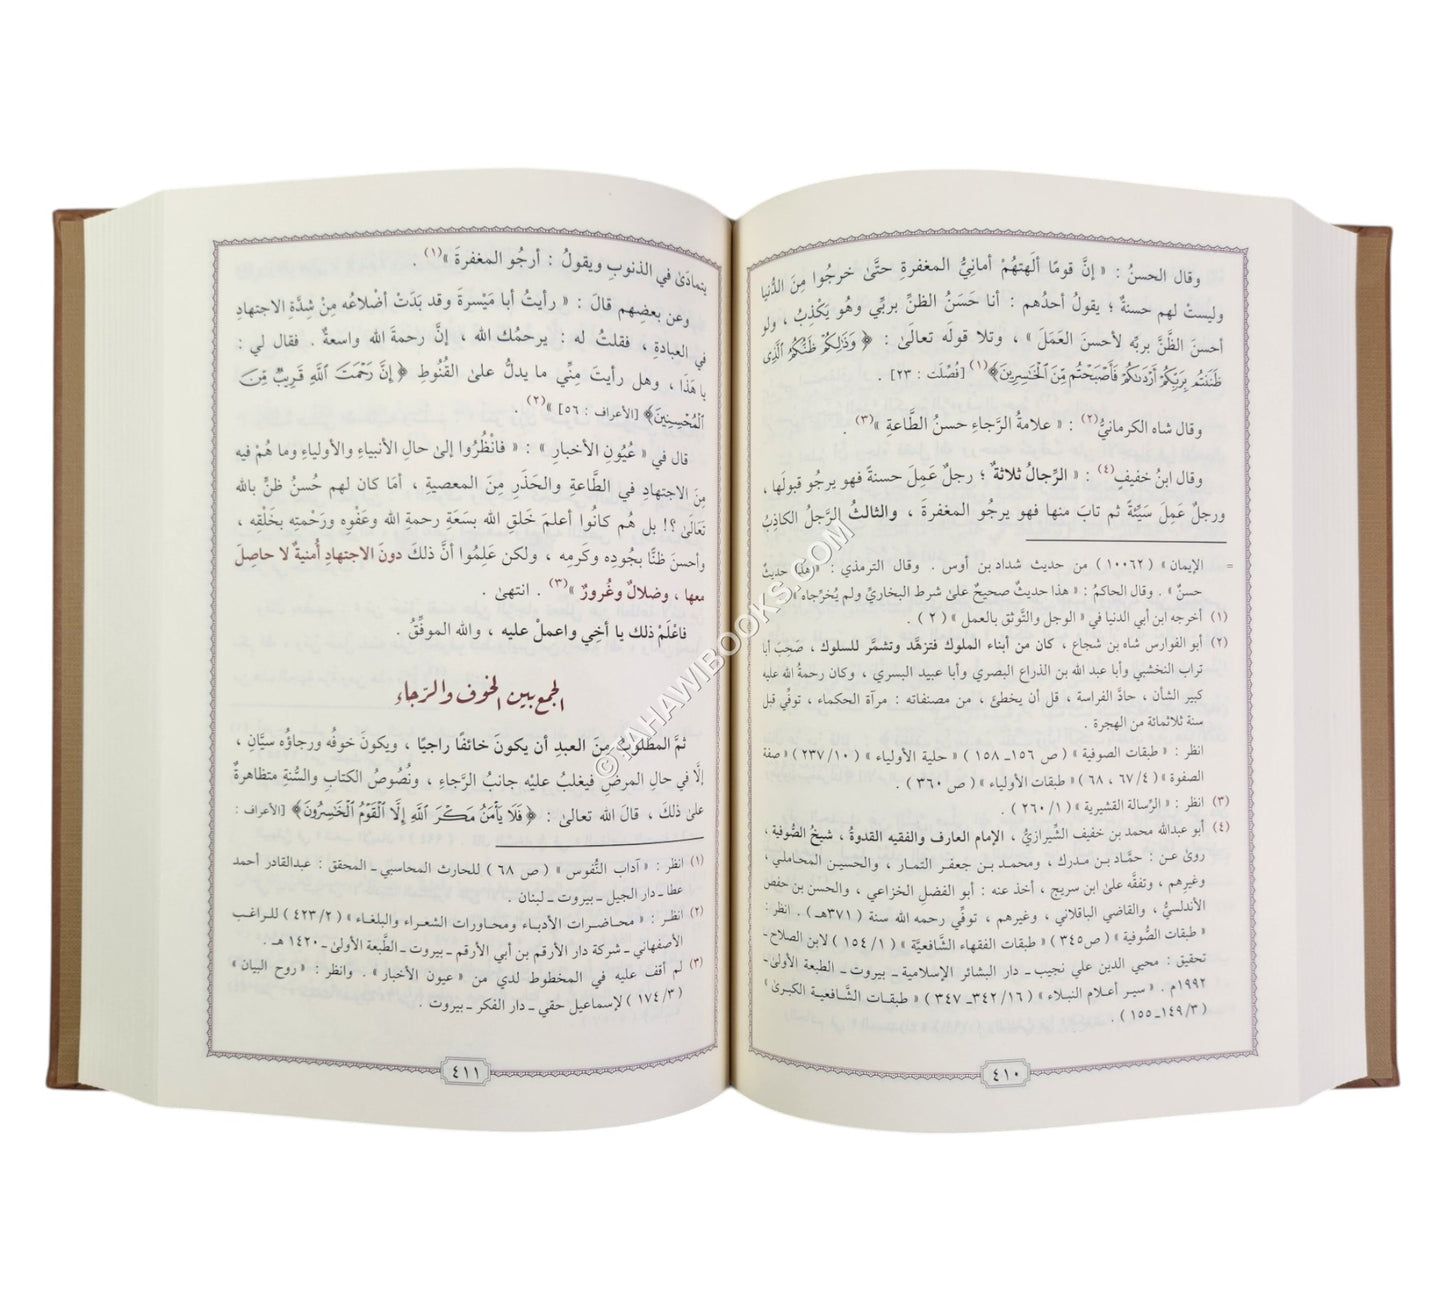 وقال الحسنُ : « إنَّ قومًا ألهتهُمْ أمانِيُّ المغفرةِ حتَّىٰ خرجُوا مِنَ الدُّنيا
وليستْ لهم حسنةٌ ؛ يقولُ أحدُهم : أنا حَسَنُ الظنِّ بربِّي وهُو يَكْذِبُ ، ولو
أحسنَ الظَّنَّ بربِّه لأحسنَ العَمَلَ » ، وتلا قولَه تعالَىٰ : ﴿ وَذَٰلِكُمْ ظَنُّكُمُ ٱلَّذِى
ظَنَنتُم بِرَبِّكُمْ أَرْدَىٰكُمْ فَأَصْبَحْتُم مِّنَ ٱلْخَٰسِرِينَ﴾(١) [فُصِّلَت : ٢٣] .
وقال شاه الكرمانيُّ(٢) : « علامةُ الرَّجاءِ حسنُ الطَّاعةِ »(٣) .
وقال ابنُ خفيفٍ(٤) : « الرِّجالُ ثلاثةٌ ؛ رجلٌ عَمِلَ حسنةً فهو يرجُو قبولَها ،
ورجلٌ عَمِلَ سَيِّئةً ثم تابَ منها فهو يرجُو المغفرةَ ، والثالثُ الرَّجلُ الكاذِبُ
= الإيمان » ( ١٠٠٦٢ ) من حديث شداد بن أوس . وقال الترمذي : «هذا حديثٌ
حسنٌ » . وقال الحاكمُ : « هذا حديثٌ صحيحٌ علىٰ شرط البخاريِّ ولم يُخرِّجاه » .
(١) أخرجه ابن أبي الدنيا في « الوجل والتَّوثق بالعمل » ( ٢ ) .
(٢) أبو الفوارس شاه بن شجاع ، كان من أبناء الملوك فتزهَّد وتشمَّر للسلوك ، صَحِبَ أبا
تراب النخشبي وأبا عبد الله بن الذراع البصري وأبا عبيد البسري ، وكان رحمةُ الله عليه
كبير الشأن ، حادَّ الفراسة ، قل أن يخطئ ، من مصنفاته : مرآة الحكماء ، توفِّي قبل
سنة ثلاثمائة من الهجرة .
انظر : « طبقات الصوفية » ( ص ١٥٦ـ ١٥٨ ) « حلية الأولياء » ( ١٠/ ٢٣٧ ) « صفة
الصفوة » ( ٤/ ٦٧ ، ٦٨ ) « طبقات الأولياء » ( ص ٣٦٠ ) .
(٣) انظر : « الرِّسالة القشيرية » ( ١/ ٢٦٠ ) .
(٤) أبو عبدالله محمد بن خفيف الشِّيرازيُّ ، الإمام العارف والفقيه القدوةُ ، شيخُ الصُّوفية ،
روىٰ عن : حمَّاد بن مدرك ، ومحمد بن جعفر التمار ، والحسين المحاملي ،
وغيرهم ، وتفقَّه علىٰ ابن سريج ، أخذ عنه : أبو الفضل الخزاعي ، والحسن بن حفص
الأندلسيُّ ، والقاضي الباقلاني ، وغيرهم ، توفِّي رحمه الله سنة (٣٧١هـ) . انظر :
« طبقات الصُّوفية » ( ص٣٤٥) « طبقات الفقهاء الشَّافعيَّة » ( ١/ ١٥٤ ) لابن الصلاح ـ
تحقيق : محيي الدين علي نجيب ـ دار البشائر الإسلامية ـ بيروت ـ الطبعة الأولىٰ ـ
١٩٩٢م . « سير أعلام النبلاء » ( ١٦/ ٣٤٢ـ ٣٤٧ ) « طبقات الشَّافعية الكبرىٰ »
( ٣/ ١٤٩ـ ١٥٥ ) .
٤١٠
يتمادَىٰ في الذنوبِ ويقولُ : أرجُو المغفرةَ »(١) .
وعن بعضِهم قالَ : « رأيتُ أبا مَيْسرةَ وقد بَدَتْ أضْلاعُه مِنْ شِدَّةِ الاجتهادِ
في العبادةِ ، فقلتُ له : يرحمُك الله ، إنَّ رحمةَ الله واسعةٌ . فقال لي :
يا هَذَا ، وهل رأيتَ مِنِّي ما يدلُّ علىٰ القُنُوطِ ﴿ إِنَّ رَحْمَتَ ٱللَّهِ قَرِيبٌ مِّنَ
ٱلْمُحْسِنِينَ﴾ [الأعراف : ٥٦] »(٢) .
قال في « عُيُونِ الأخبارِ » : « فانْظُرُوا إلىٰ حالِ الأنبياءِ والأولياءِ وما هُمْ فيه
مِنَ الاجتهادِ في الطَّاعةِ والحَذَرِ مِنَ المعصيةِ ، أمَا كان لهم حُسنُ ظنٍّ بالله
تعَالَىٰ ؟! بل هُم كانُوا أعلمَ خَلقِ الله بسَعَةِ رحمةِ الله وعَفْوِه ورَحْمتِه بخَلْقِه ،
وأحسنَ ظنًّا بجُودِه وكَرمِه ، ولكن عَلِمُوا أنَّ ذلكَ دونَ الاجتهادِ أُمنيةٌ لا حاصِلَ
معها ، وضلالٌ وغُرورٌ »(٣) . انتهىٰ .
فاعْلَمْ ذلك يا أخِي واعملْ عليه ، والله الموفِّقُ .
الجمع بين الخوف والرَّجاء
ثمَّ المطلوبُ مِنَ العبدِ أن يكونَ خائفًا راجيًا ، ويكونَ خوفُه ورجاؤُه سيَّان ،
إلَّا في حالِ المرضِ فيغلبُ عليْه جانبُ الرَّجاءِ ، ونُصُوصُ الكتابِ والسُّنةِ متظاهرةٌ
علىٰ ذلكَ ، قالَ الله تعالىٰ : ﴿ فَلَا يَأْمَنُ مَكْرَ ٱللَّهِ إِلَّا ٱلْقَوْمُ ٱلْخَٰسِرُونَ﴾ [الأعراف :
(١) انظر : « آداب النُّفوس » ( ص ٦٨ ) للحارث المحاسبي ـ المحقق : عبدالقادر أحمد
عطا ـ دار الجيل ـ بيروت ـ لبنان .
(٢) انظر : « محاضرات الأدباء ومحاورات الشعراء والبلغاء » ( ٢/ ٤٢٣ ) للراغب
الأصفهاني ـ شركة دار الأرقم بن أبي الأرقم ـ بيروت ـ الطَّبعة الأولىٰ ـ ١٤٢٠ هـ .
(٣) لم أقف عليه في المخطوط لدي من « عيون الأخبار » . وانظر : « روح البيان »
( ٣/ ١٧٤ ) لإسماعيل حقي ـ دار الفكر ـ بيروت .
٤١١
©TAHAWIBOOKS.COM